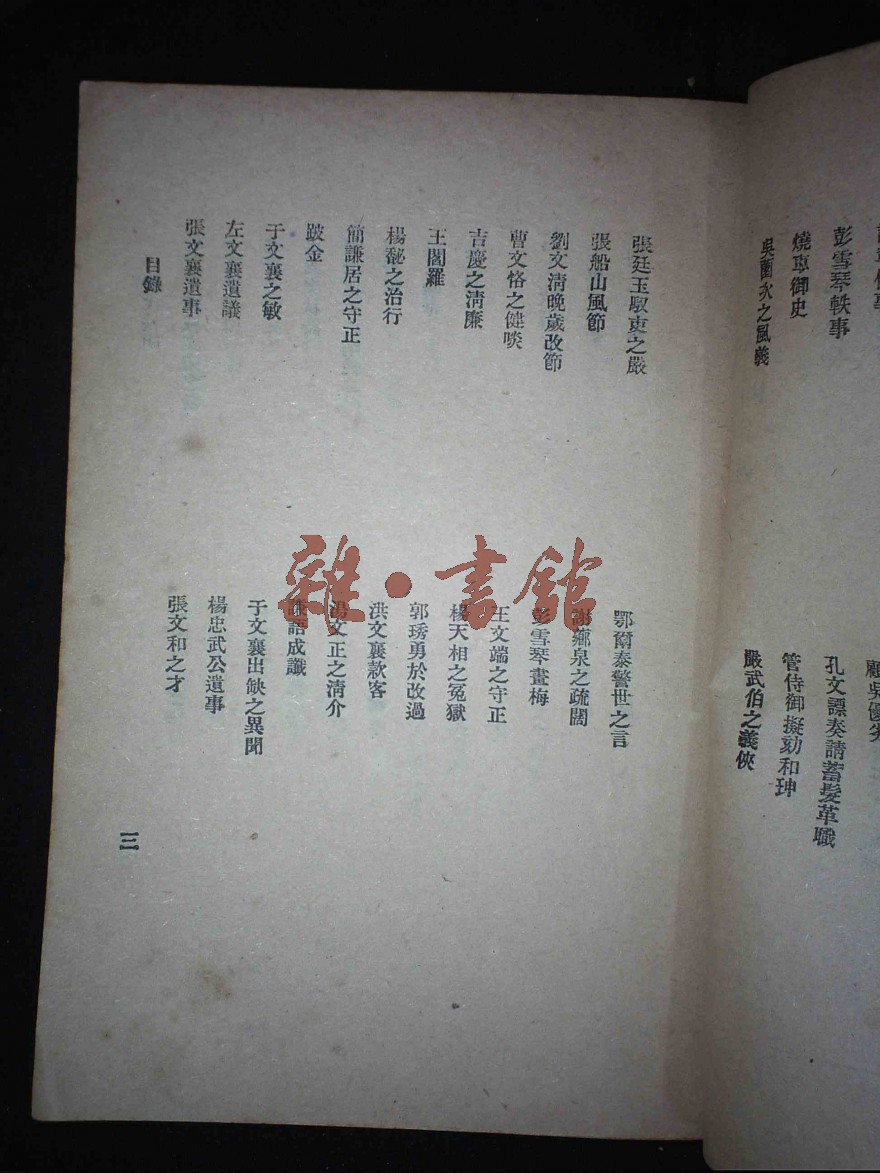 彭雪琴軼事
燒車御史
吳薗次之風義
顧吳優劣
孔文謤奏請蓄髮革職
管侍御擬劾和珅
嚴武伯之義俠
張廷玉馭吏之嚴
張船山風節
劉文清晚歲改節
曹文恪之健啖
吉慶之清廉
王閻羅
楊馝之治行
簡謙居之守正
跛金
于文襄之敏
左文襄遺議
張文襄遺事
鄂爾泰警世之言
謝薌泉之疏闊
彭雪琴畫梅
王文端之守正
楊天相之冤獄
郭琇勇於改過
洪文襄款客
湯文正之清介
謙語成讖
于文襄出缺之異聞
楊忠武公遺事
張文和之才
目錄
三
雜·書館